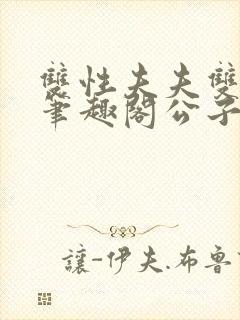 雙性夫夫雙
筆趣閣公子
讓-伊夫.布魯